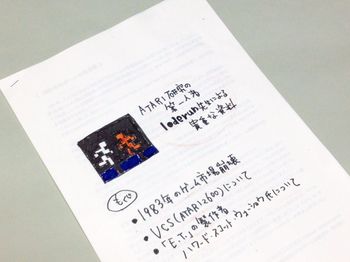 ATARI研究の
第一人者
loderun先生による
貴重な資料
もくじ
• 1983年のゲーム市場崩壊
• VCS(ATARI2600)について
• 「E.T.」の製作者
ハワード・スコット・ウォーショウ氏について